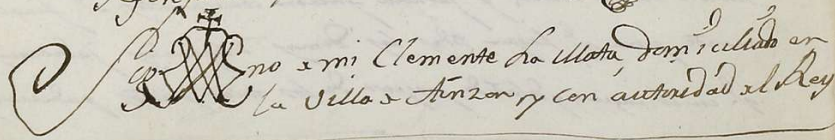 Sig no de mi Clemente La Mata domiciliado en
la Villa de Ainzon y con autoridad del Rey